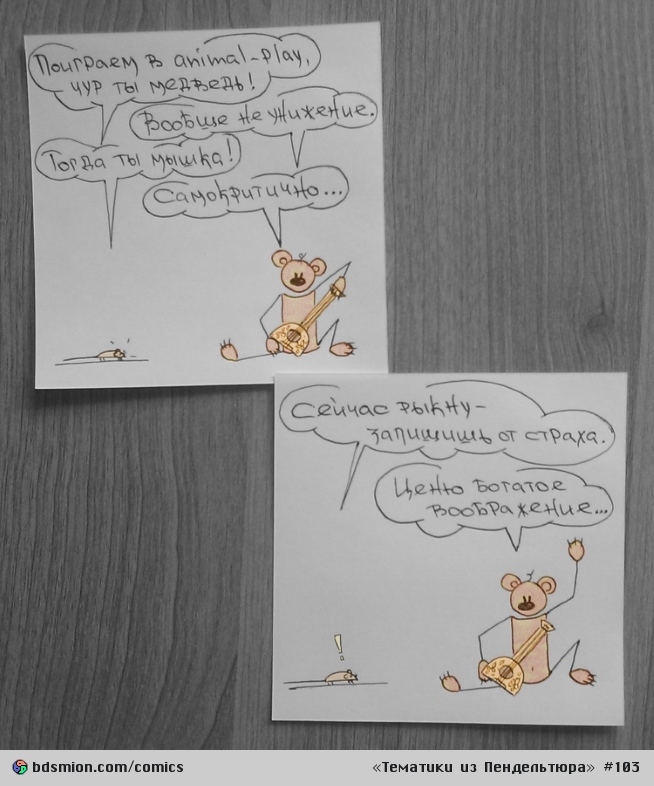 Поиграем в animal-play,
чур ты медведь!
Вообще не унижение.
Тогда ты мышка!
Самокритично...
Сейчас рыкну-
запищишь от страха.
!
Ценю богатое
воображение...
bdsmion.com/comics
«Тематики из Пендельтюра» #103